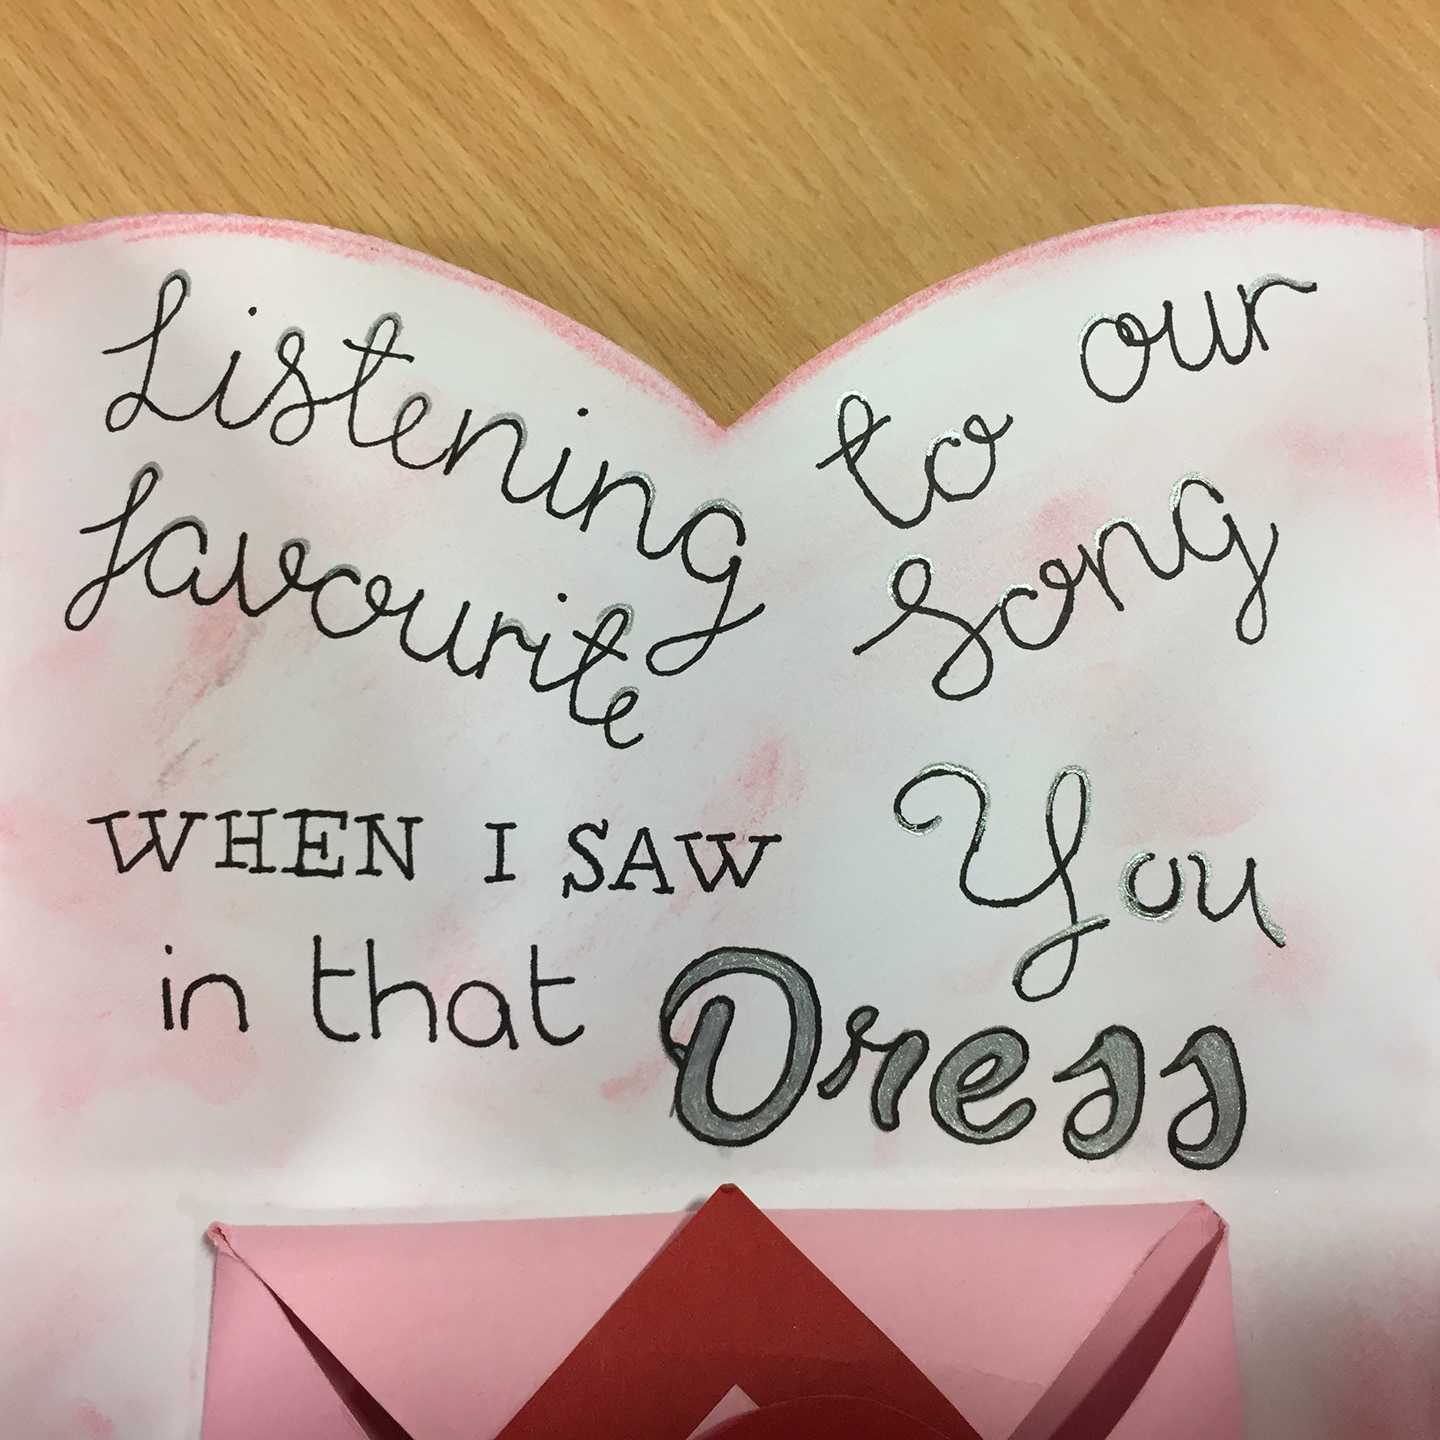 Listening to our
favourite song
WHEN I SAW You
in that Dress